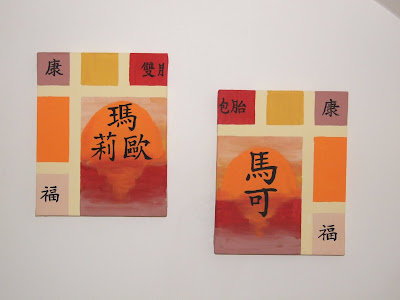 康
雙月
瑪
莉歐
福
包胎
康
馬
可
福